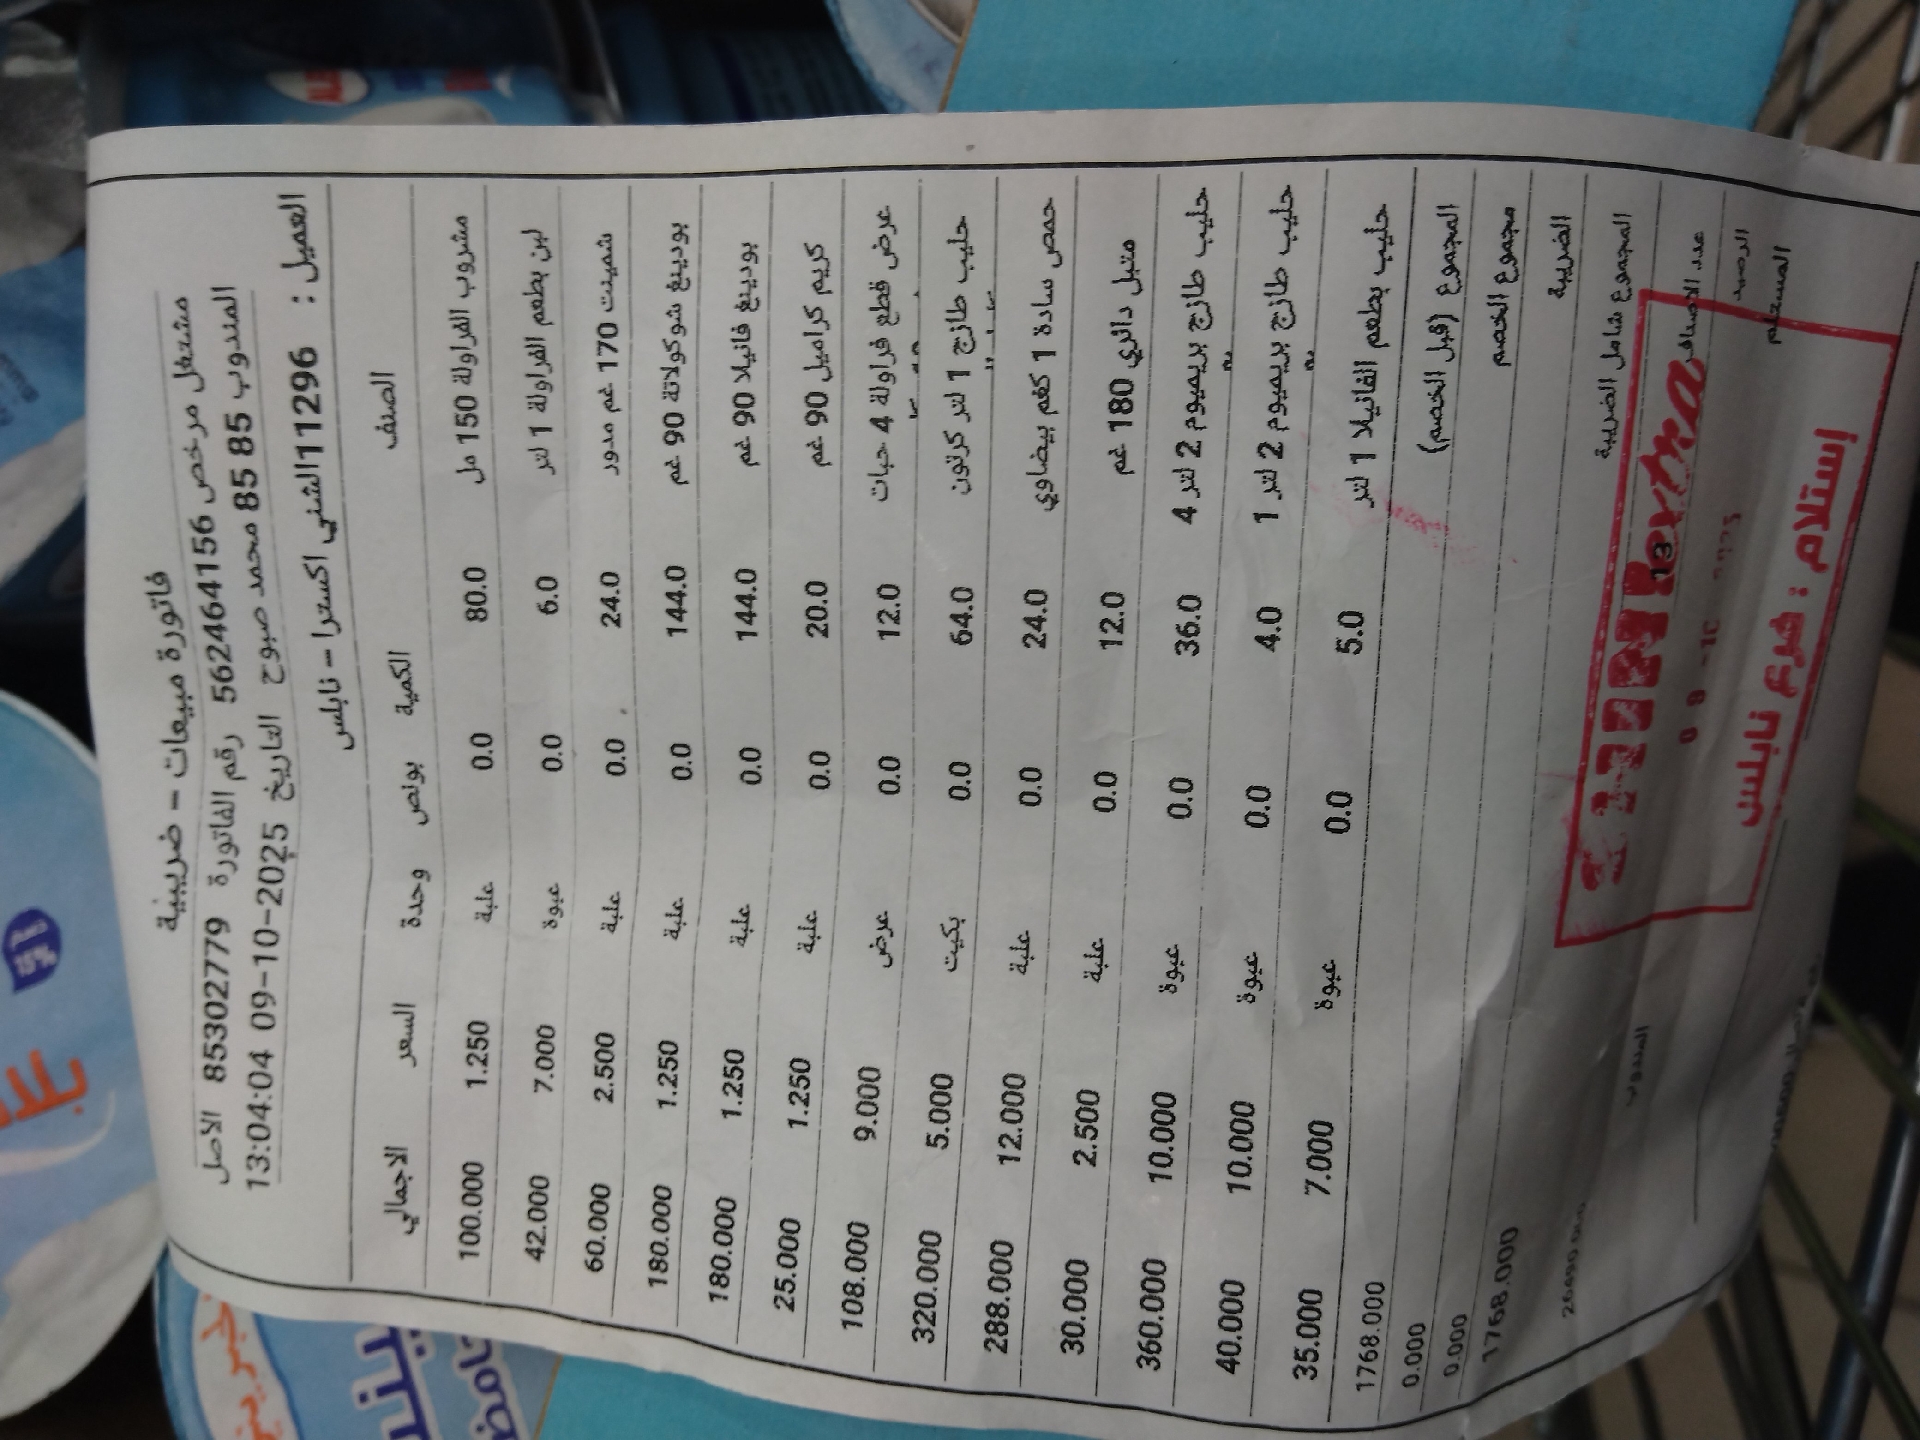 فاتورة مبيعات - ضريبية
مشتغل مرخص 562464156 رقم الفاتورة 85302779 الاصل
المندوب 85 85 محمد صبوح التاريخ 2025-10-09 13:04:04
العميل : 11296الشني اكسترا - نابلس
الصنف الكمية بونص وحدة السعر الاجمالي
مشروب الفراولة 150 مل 80.0 0.0 علبة 1.250 100.000
لبن بطعم الفراولة 1 لتر 6.0 0.0 عبوة 7.000 42.000
شمينت 170 غم مدور 24.0 0.0 علبة 2.500 60.000
بودينغ شوكولاتة 90 غم 144.0 0.0 علبة 1.250 180.000
بودينغ فانيلا 90 غم 144.0 0.0 علبة 1.250 180.000
كريم كراميل 90 غم 20.0 0.0 علبة 1.250 25.000
عرض قطع فراولة 4 حبات 12.0 0.0 عرض 9.000 108.000
حليب طازج 1 لتر كرتون 64.0 0.0 بكيت 5.000 320.000
حمص سادة 1 كغم بيضاوي 24.0 0.0 علبة 12.000 288.000
متبل دالري 180 غم 12.0 0.0 علبة 2.500 30.000
حليب طازج بريميوم 2 لتر 4 36.0 0.0 عبوة 10.000 360.000
حليب طازج بريميوم 2 لتر 1 4.0 0.0 عبوة 10.000 40.000
حليب بطعم الفانيلا 1 لتر 5.0 0.0 عبوة 7.000 35.000
المجموع (قبل الخصم) 1768.000
مجموع الخصم 0.000
الضريبة 0.000
المجموع شامل الضريبة 1768.000
عدد الاصناف 13
الرصيد 26490.000
المستلم المندوب
extra
إستلام : فرع نابلس